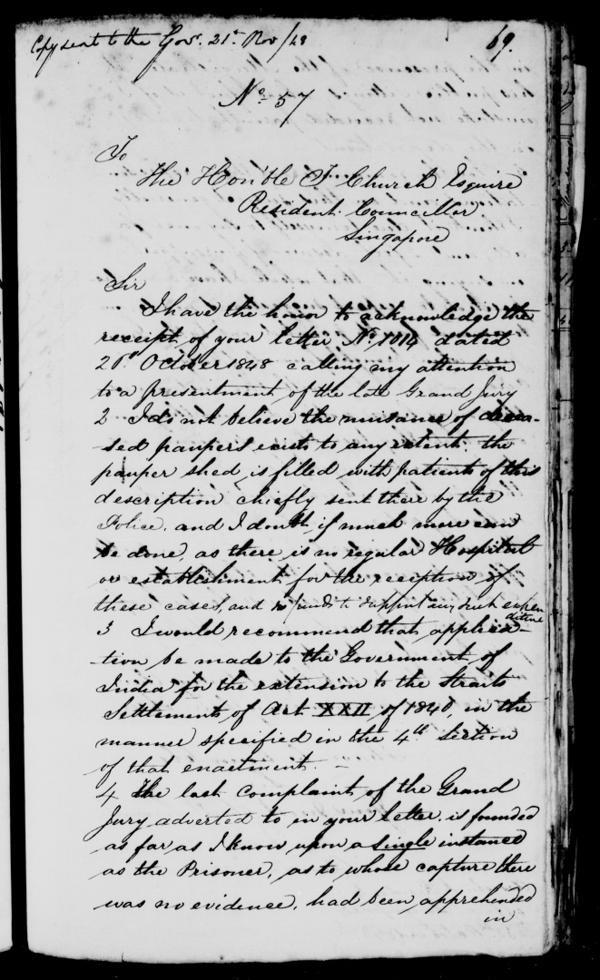 Copy sent to the Govr. 21st Nov/48
69.
No. 57
To
The Hon'ble T. Church Esquire
Resident Councillor
Singapore
Sir
I have the honor to acknowledge the
receipt of your letter No. 1014 dated
20th October 1848 calling my attention
to a presentment of the late Grand Jury
2 I do not believe the nuisance of disea-
-sed paupers exists to any extent. the
pauper shed is filled with patients of this
description chiefly sent there by the
Police, and I doubt if much more can
be done, as there is no regular Hospital
or establishment for the reception of
these cases, and no funds to support any such expen
diture
3 I would recommend that applica-
-tion be made to the Government of
India for the extension to the Straits
Settlements of Act XXII of 1840, in the
manner specified in the 4th Section
of that enactment. -
4 The last Complaint of the Grand
Jury adverted to in your letter is founded
as far as I know upon a single instance
as the Prisoner, as to whose capture there
was no evidence, had been apprehended
in